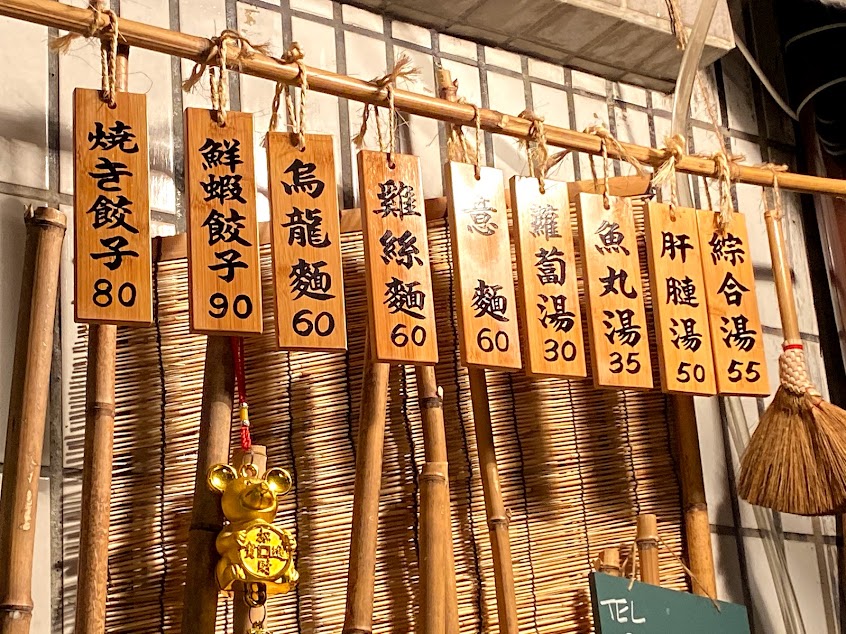 焼き餃子
80
鮮蝦餃子
90
烏龍麵
60
雞絲麵
60
意麵
60
蘿蔔湯
30
魚丸湯
35
肝腱湯
50
綜合湯
55
招
財
TEL